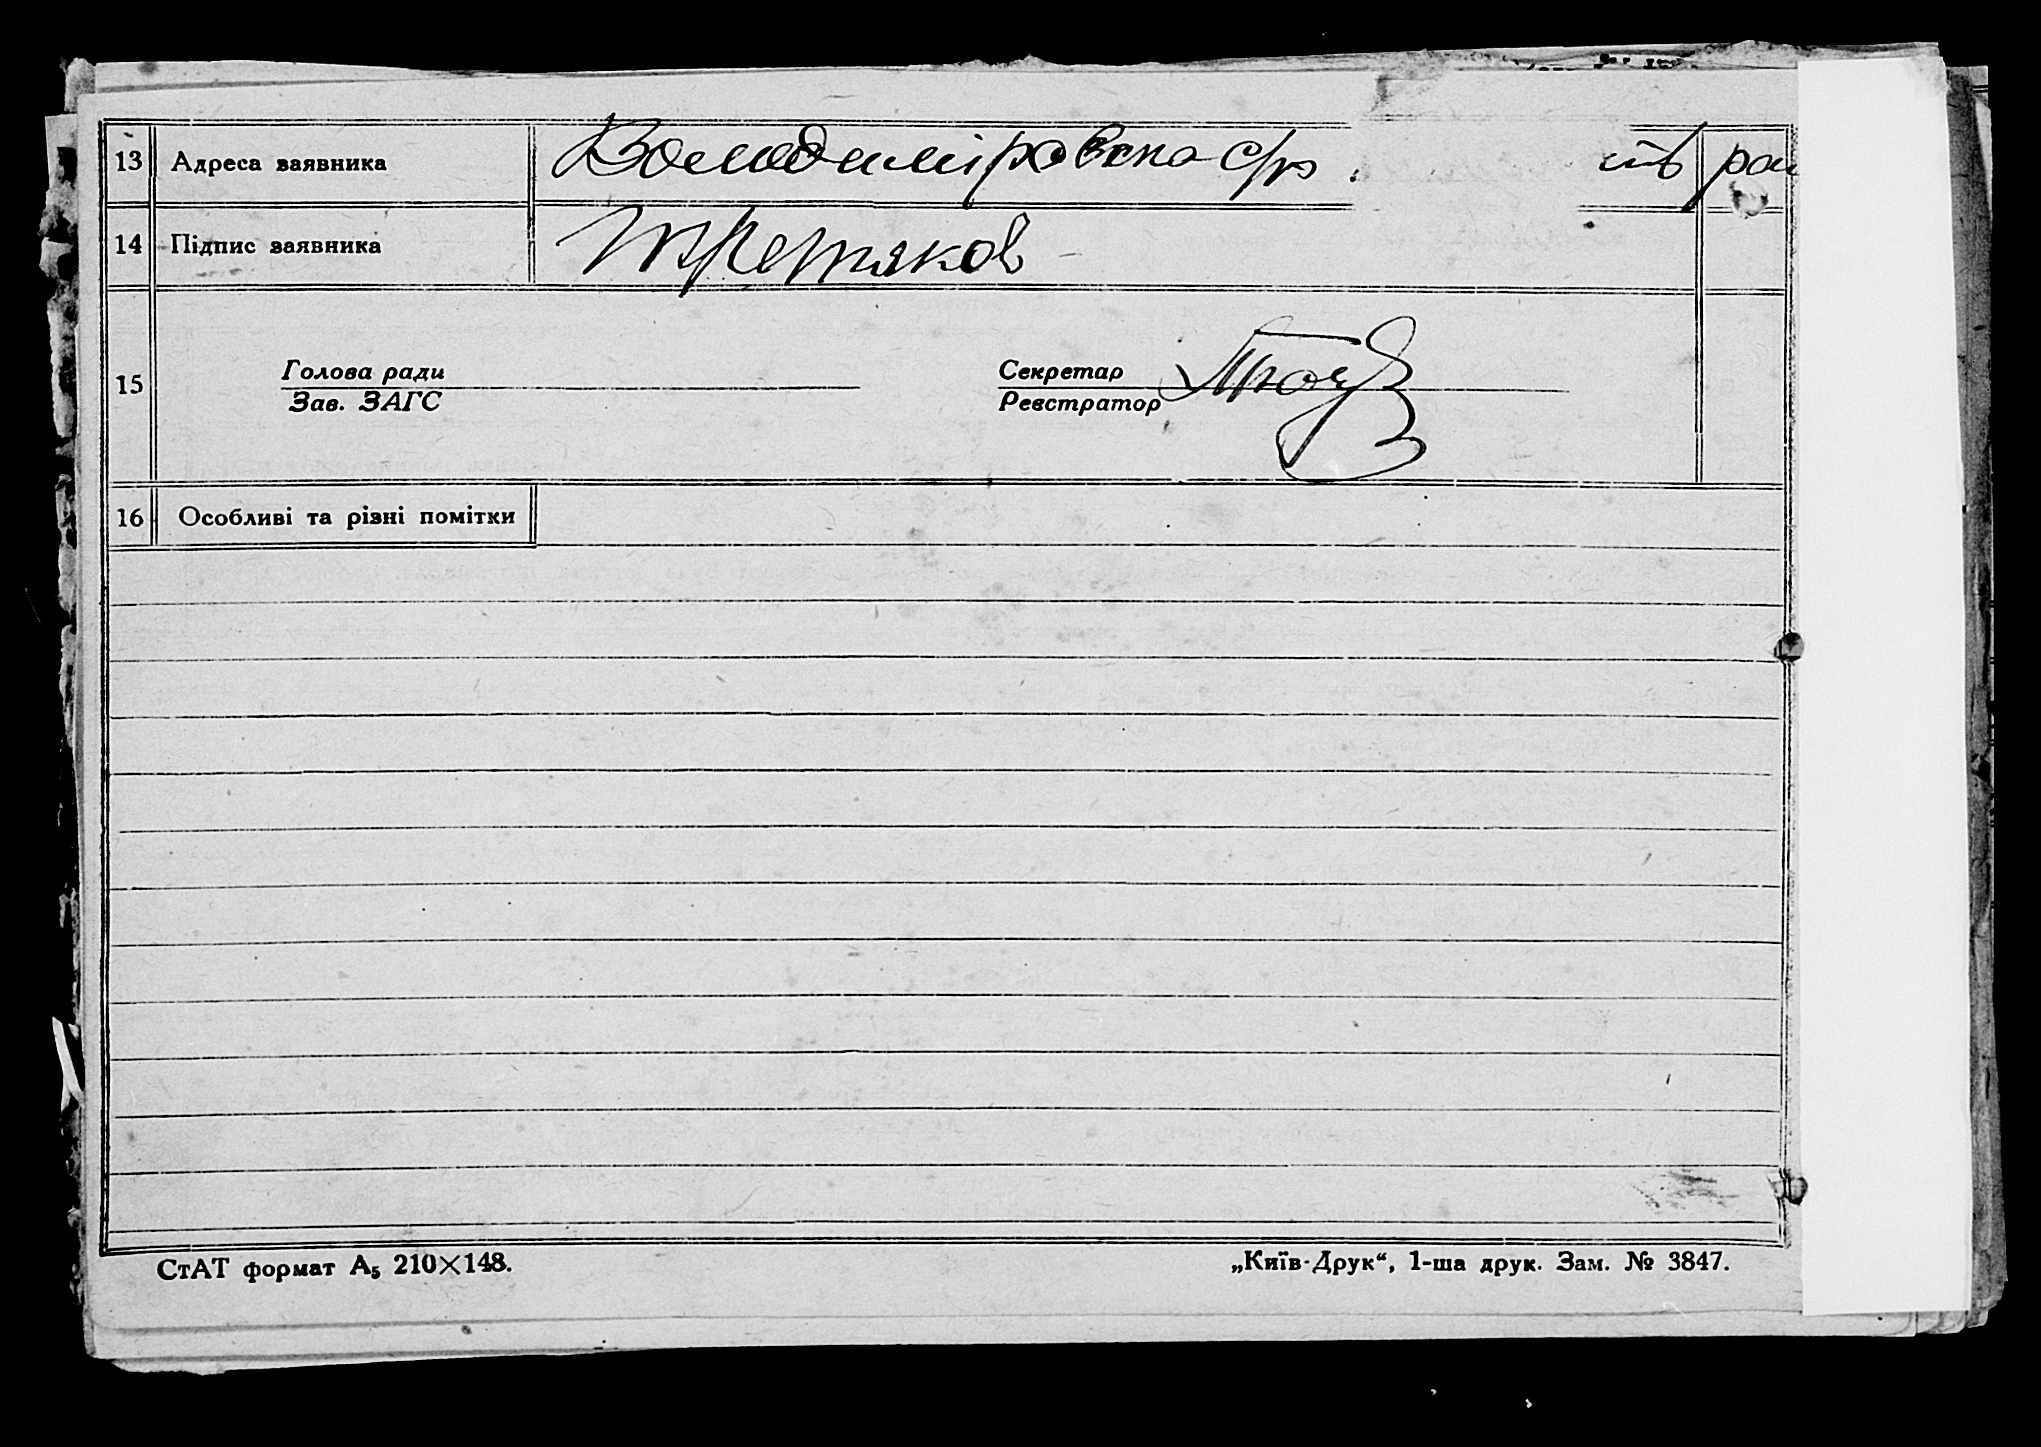 13 Адреса заявника Володиміровска с/р
14 Підпис заявника Третяков
15 Голова ради Секретар
Зав. ЗАГС Реєстратор
16 Особливі та різні помітки
СтАТ формат А₅ 210×148. „Київ-Друк“, 1-ша друк. Зам. № 3847.